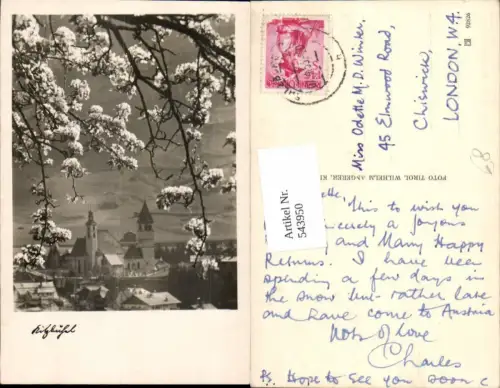 Kitzbühel
Miss Odette M.D. Winter,
45 Elmwood Road,
Chiswick,
LONDON, W4.
FOTO TIROL, WILHELM ANGERER, KI
Artikel Nr.
543950
This to wish you
a joyous
and Many Happy
Returns. I have been
spending a few days in
the snow but rather late
and have come to Austria
Lots of Love
Charles
Ps. Hope to see you soon c